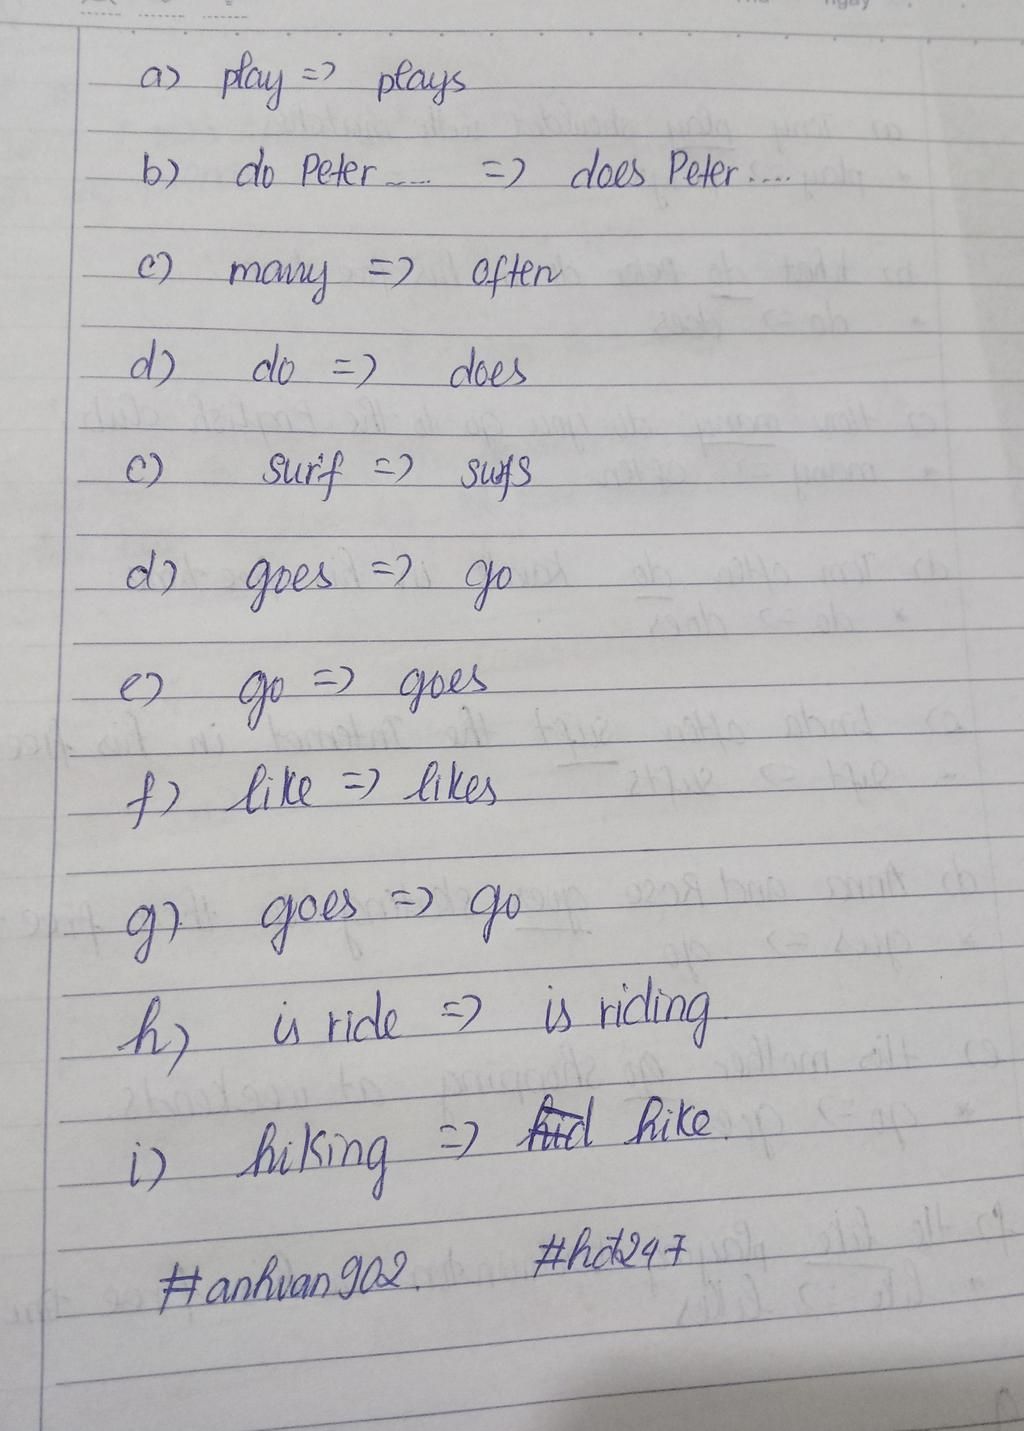 a) play => plays
b) do Peter..... => does Peter....
c) many => often
d) do => does
c) surf => surfs
d) goes => go
e) go => goes
f) like => likes
g) goes => go
h) is ride => is riding
i) hiking => hike.
#anhvan902. #hdt247